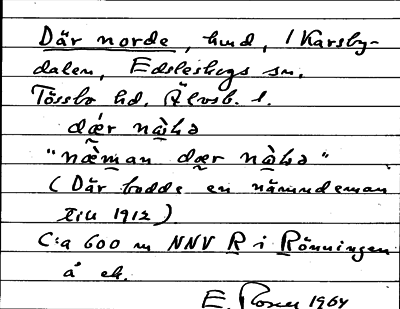 Där norde, hmd, i Karsby-
dalen, Edsleskogs sn.
Tössbo hd. Älvsb. l.
dǽr nɑ̀hə
"næ̀man dær nɑ̀hə"
(Där bodde en nämndeman
till 1912)
C:a 600 m NNV R i Rönningen
å ek.
E. Rosen 1964